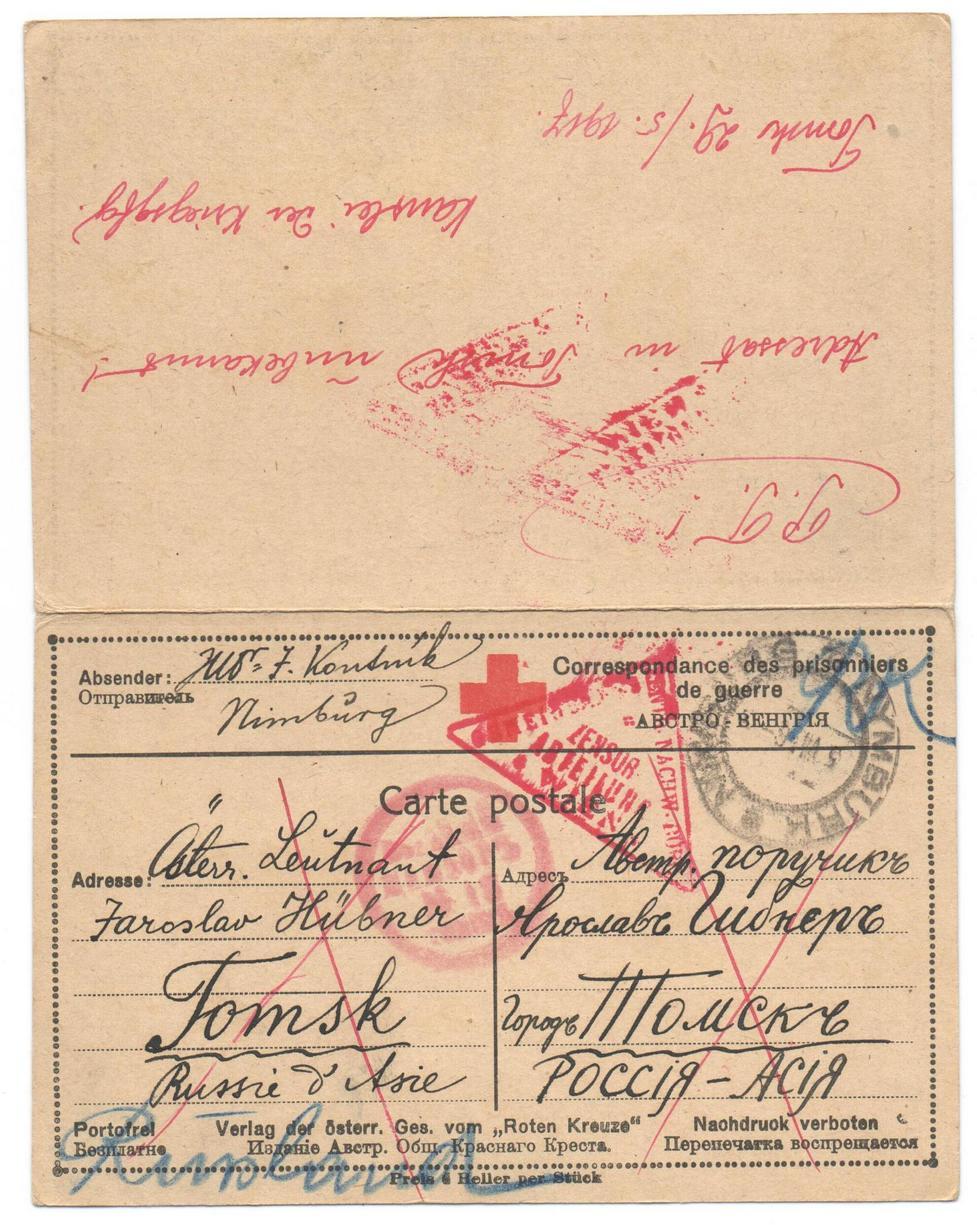 P.T.!
Adressat in Tomsk unbekannt!
Kanzlei der Kriegsgfg.
Tomsk 29./5. 1917.
Absender: JUDr. J. Koutnik
Отправитель
Nimburg
Correspondance des prisonniers
de guerre
АВСТРО-ВЕНГРІЯ
ZENSUR
ABTEILUNG
WIEN
NYMBURK
Carte postale
Adresse: Österr. Leutnant
Jaroslav Hübner
Tomsk
Russie d'Asie
Адресъ Австр. поручикъ
Ярославъ Гибнеръ
Городъ Томскъ
РОССІЯ – АСІЯ
Portofrei
Безплатно
Verlag der österr. Ges. vom „Roten Kreuze“
Изданіе Австр. Общ. Краснаго Креста.
Nachdruck verboten
Перепечатка воспрещается
Preis 6 Heller per Stück